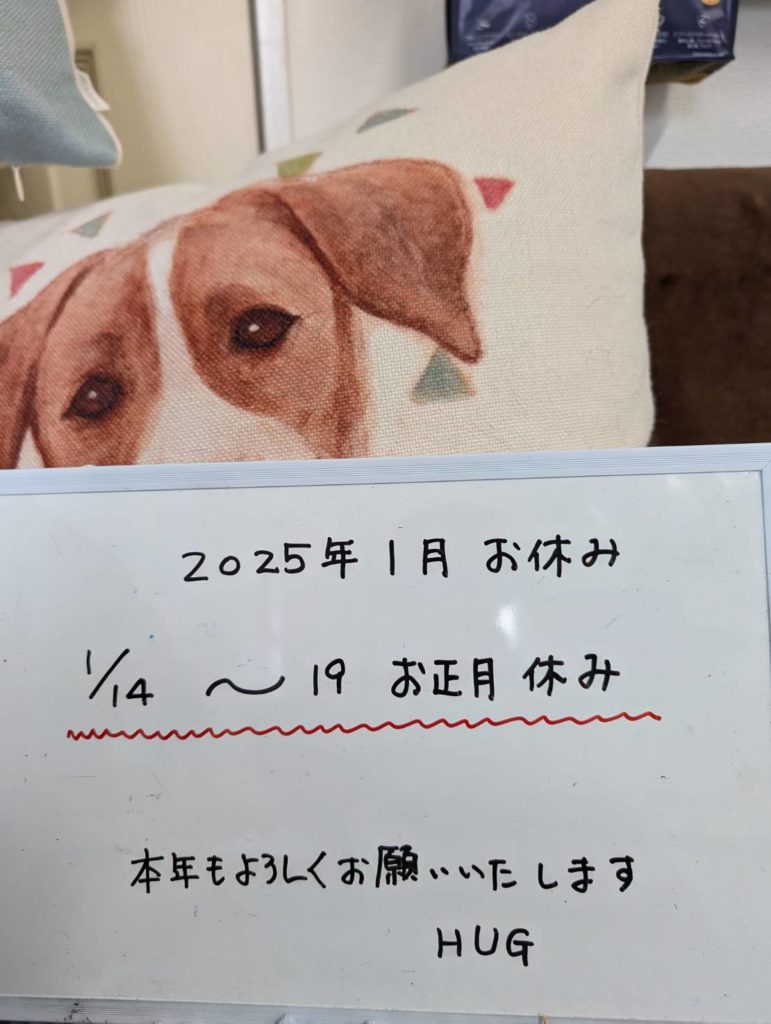 2025年1月 お休み
1/14 〜 19 お正月休み
本年もよろしくお願いいたします
HUG